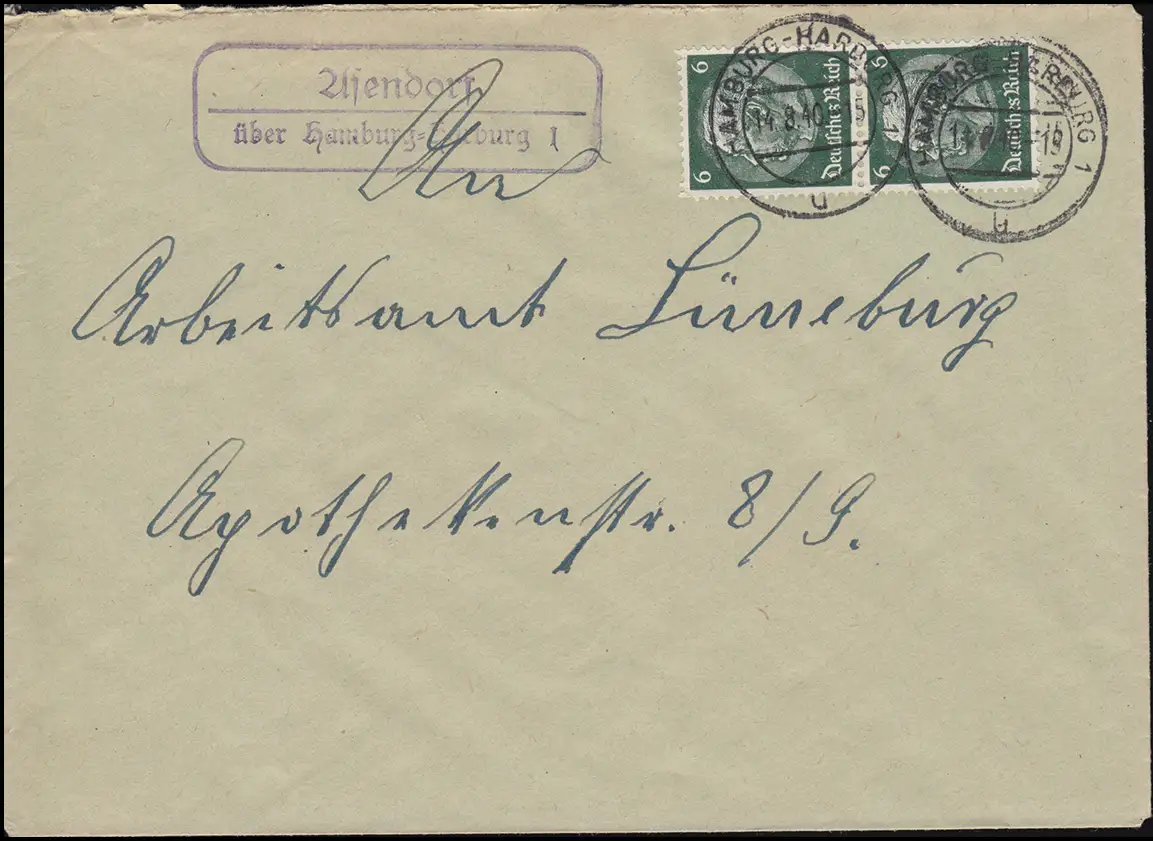 Asendorf
über Hamburg-Harburg 1
6 Deutsches Reich
6 Deutsches Reich
HAMBURG-HARBURG 1
14.8.40.-15
u
HAMBURG-HARBURG 1
An
Arbeitsamt Lüneburg
Apothekenstr. 8/9.